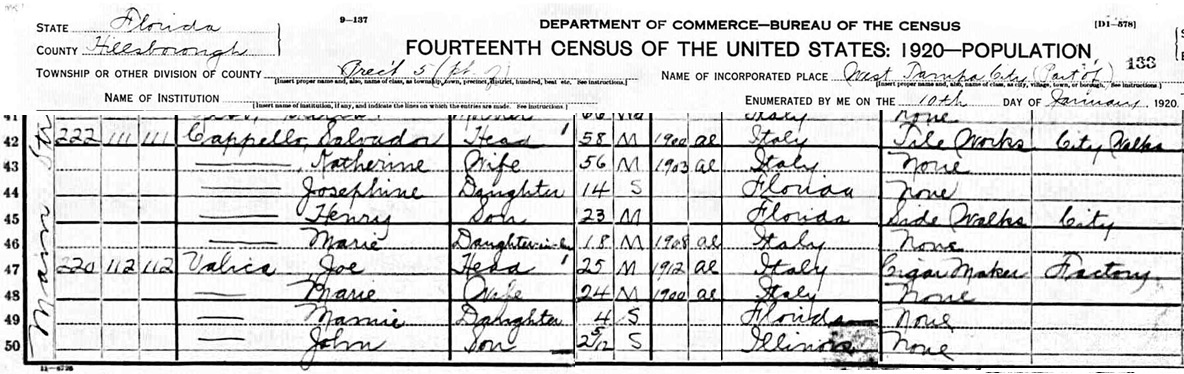 9-137
DEPARTMENT OF COMMERCE—BUREAU OF THE CENSUS
[D1-578]
STATE Florida
COUNTY Hillsborough
FOURTEENTH CENSUS OF THE UNITED STATES: 1920—POPULATION
133
TOWNSHIP OR OTHER DIVISION OF COUNTY Prec't 5 (pt of)
NAME OF INCORPORATED PLACE West Tampa City (Part of)
[Insert proper name and, also, name of class, as city, village, town, or borough. See instructions.]
NAME OF INSTITUTION
[Insert name of institution, if any, and indicate the lines on which the entries are made. See instructions.]
ENUMERATED BY ME ON THE 10th DAY OF January, 1920.
41 Italy None
42 222 111 111 Cappello, Salvador Head 1 58 M 1900 al Italy Tile Works City Walks
43 Katherine Wife 56 M 1903 al Italy None
44 Josephine Daughter 14 S Florida None
45 Henry Son 23 M Florida Side Walks City
46 Marie Daughter-in-law 18 M 1908 al Italy None
47 220 112 112 Valica Joe Head 1 25 M 1912 al Italy Cigar Maker Factory
48 Marie Wife 24 M 1900 al Italy None
49 Mamie Daughter 4 S Florida None
50 John Son 2 5/12 S Illinois None
Main